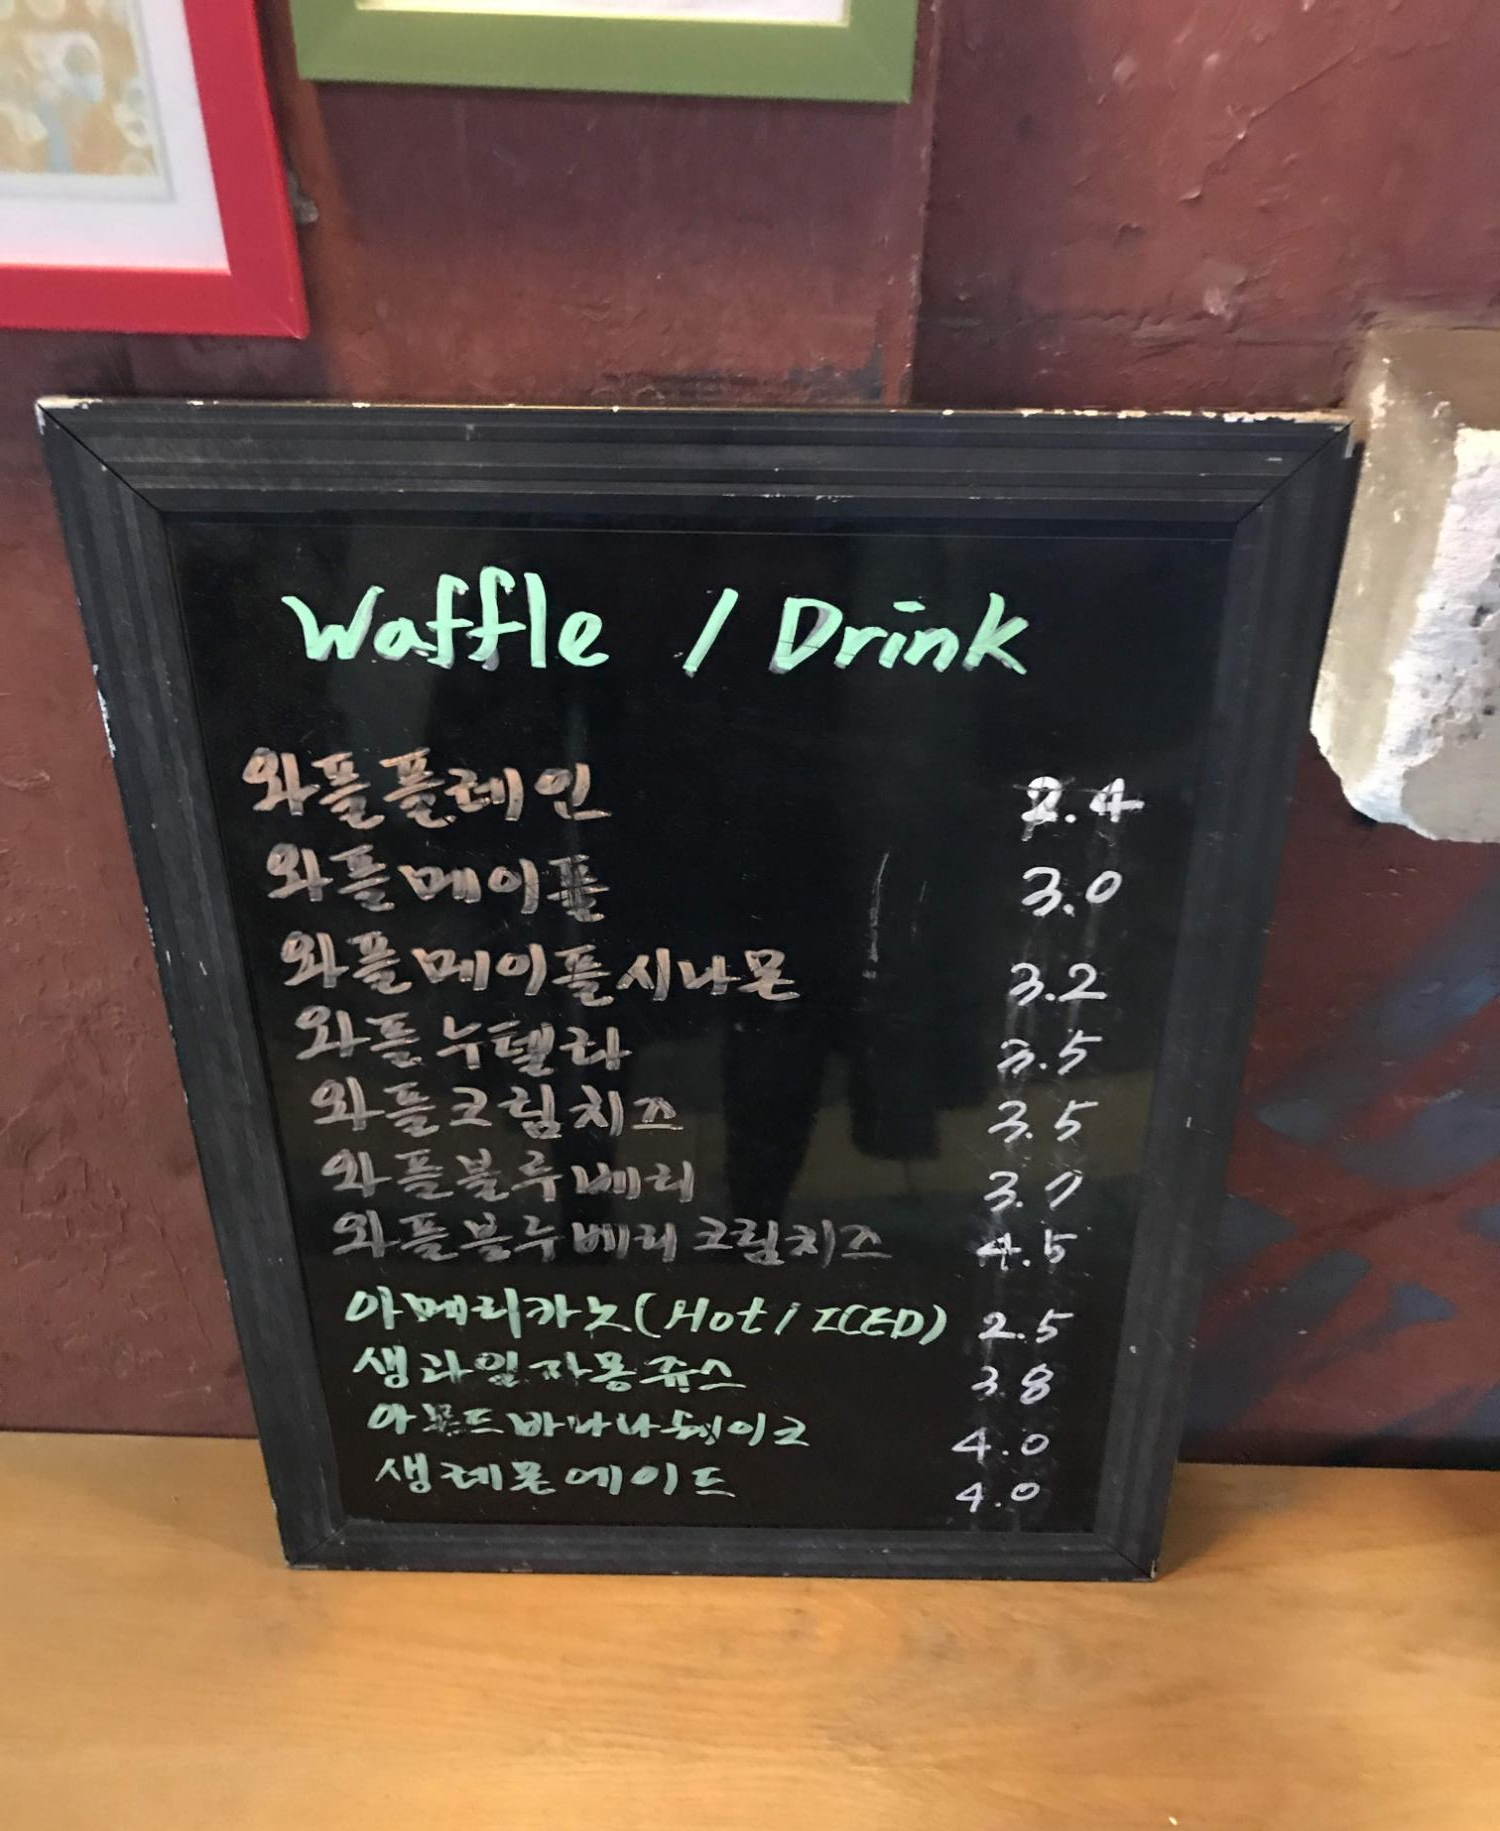 Waffle / Drink
와플플레인 2.4
와플메이플 3.0
와플메이플시나몬 3.2
와플누텔라 3.5
와플크림치즈 3.5
와플블루베리 3.7
와플블루베리크림치즈 4.5
아메리카노(Hot/ICED) 2.5
생과일자몽쥬스 3.8
아몬드바나나쉐이크 4.0
생레몬에이드 4.0